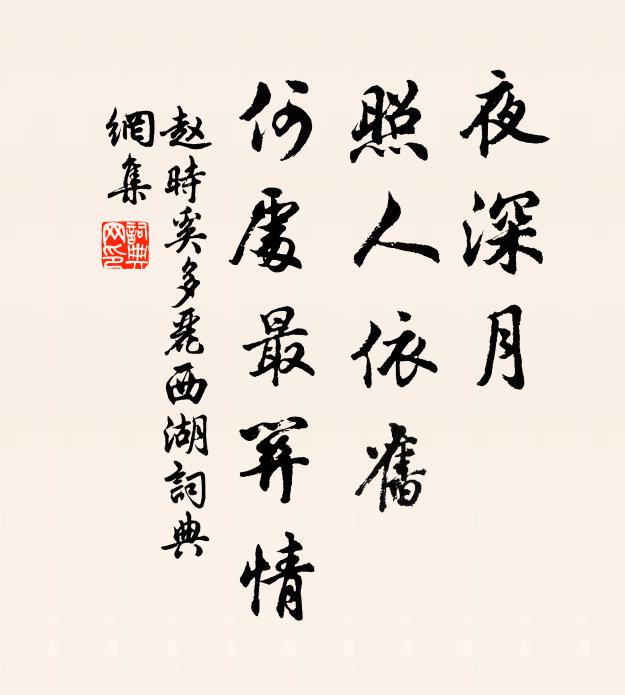 夜深月
照人依舊
何處最關情
赵時奚多麗西湖詞典
網集
詞典
网印